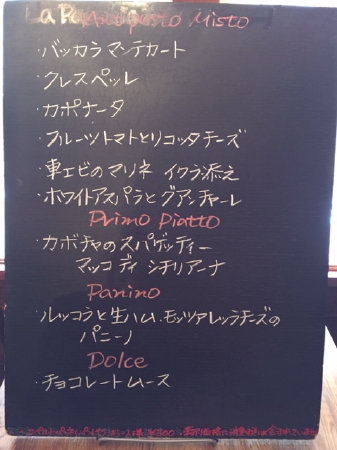 Antipasto Misto
・バッカラ マンテカート
・クレスペッレ
・カポナータ
・フルーツトマトとリコッタチーズ
・車エビのマリネ イクラ添え
・ホワイトアスパラとグアンチャーレ
Primo Piatto
・カボチャのスパゲッティー
マッコ ディ シチリアーナ
Panino
・ルッコラと生ハム、モッツァレッラチーズの
パニーノ
Dolce
・チョコレートムース